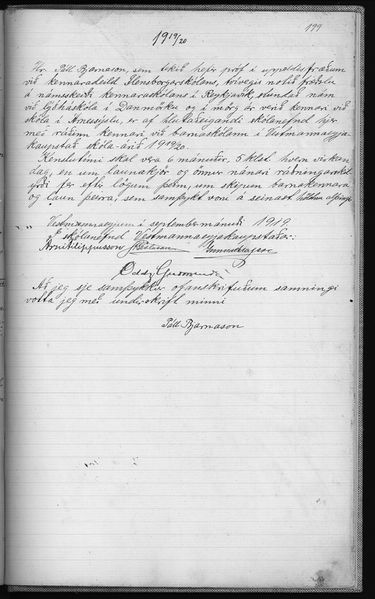 199
1919/20
Hr. Páll Bjarnason, sem tekið hefir próf í uppeldisfræðum
við kennaradeild Flensborgarskólans, tvívegis notið fræðslu
á námsskeiði kennaraskólans í Reykjavík, stundað nám
við lýðháskóla í Danmörku og í mörg ár verið kennari við
skóla í Árnessýslu, er af hlutaðeigandi skólanefnd hjer
með ráðinn kennari við barnaskólann í Vestmannaeyja
kaupstað skóla-árið 1919/20.
Kenslutími skal vera 6 mánuðir, 5 klst hvern virkan
dag, en um launakjör og önnur nánari ráðningarskil
yrði fer eftir lögum þeim, um skipun barnakennara
og laun þeirra, sem samþykt voru á seinast höldnu alþingi.
Vestmannaeyjum í septembermánuði 1919.
Í skólanefnd Vestmannaeyjakaupstaðar:
Árni Filippusson
Oddg. Guðmunds
Að jeg sje samþykkur ofanskrifuðum samningi
votta jeg með undirskrift minni
Páll Bjarnason